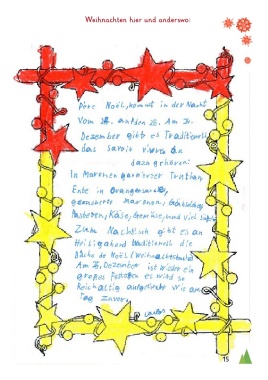 Weihnachten hier und anderswo:
Père Noël, kommt in der Nacht
Vom 24. auf den 25. Am 24.
Dezember gibt es Traditionell
das savoir vivre
dazu gehören:
In Maronen Truthan
Ente in Orangensauce,
Maronen,
Austeren, Käse, Gemüse, und viel
Zum Nachtisch gibt es an
Heiligabend traditionell die
Bûche de Noël (Weihnachts
Am 25. Dezember ist wieder ein
großes Festessen es wird so
Reichaltig aufgetischt wie am
Tag zuvor.
15